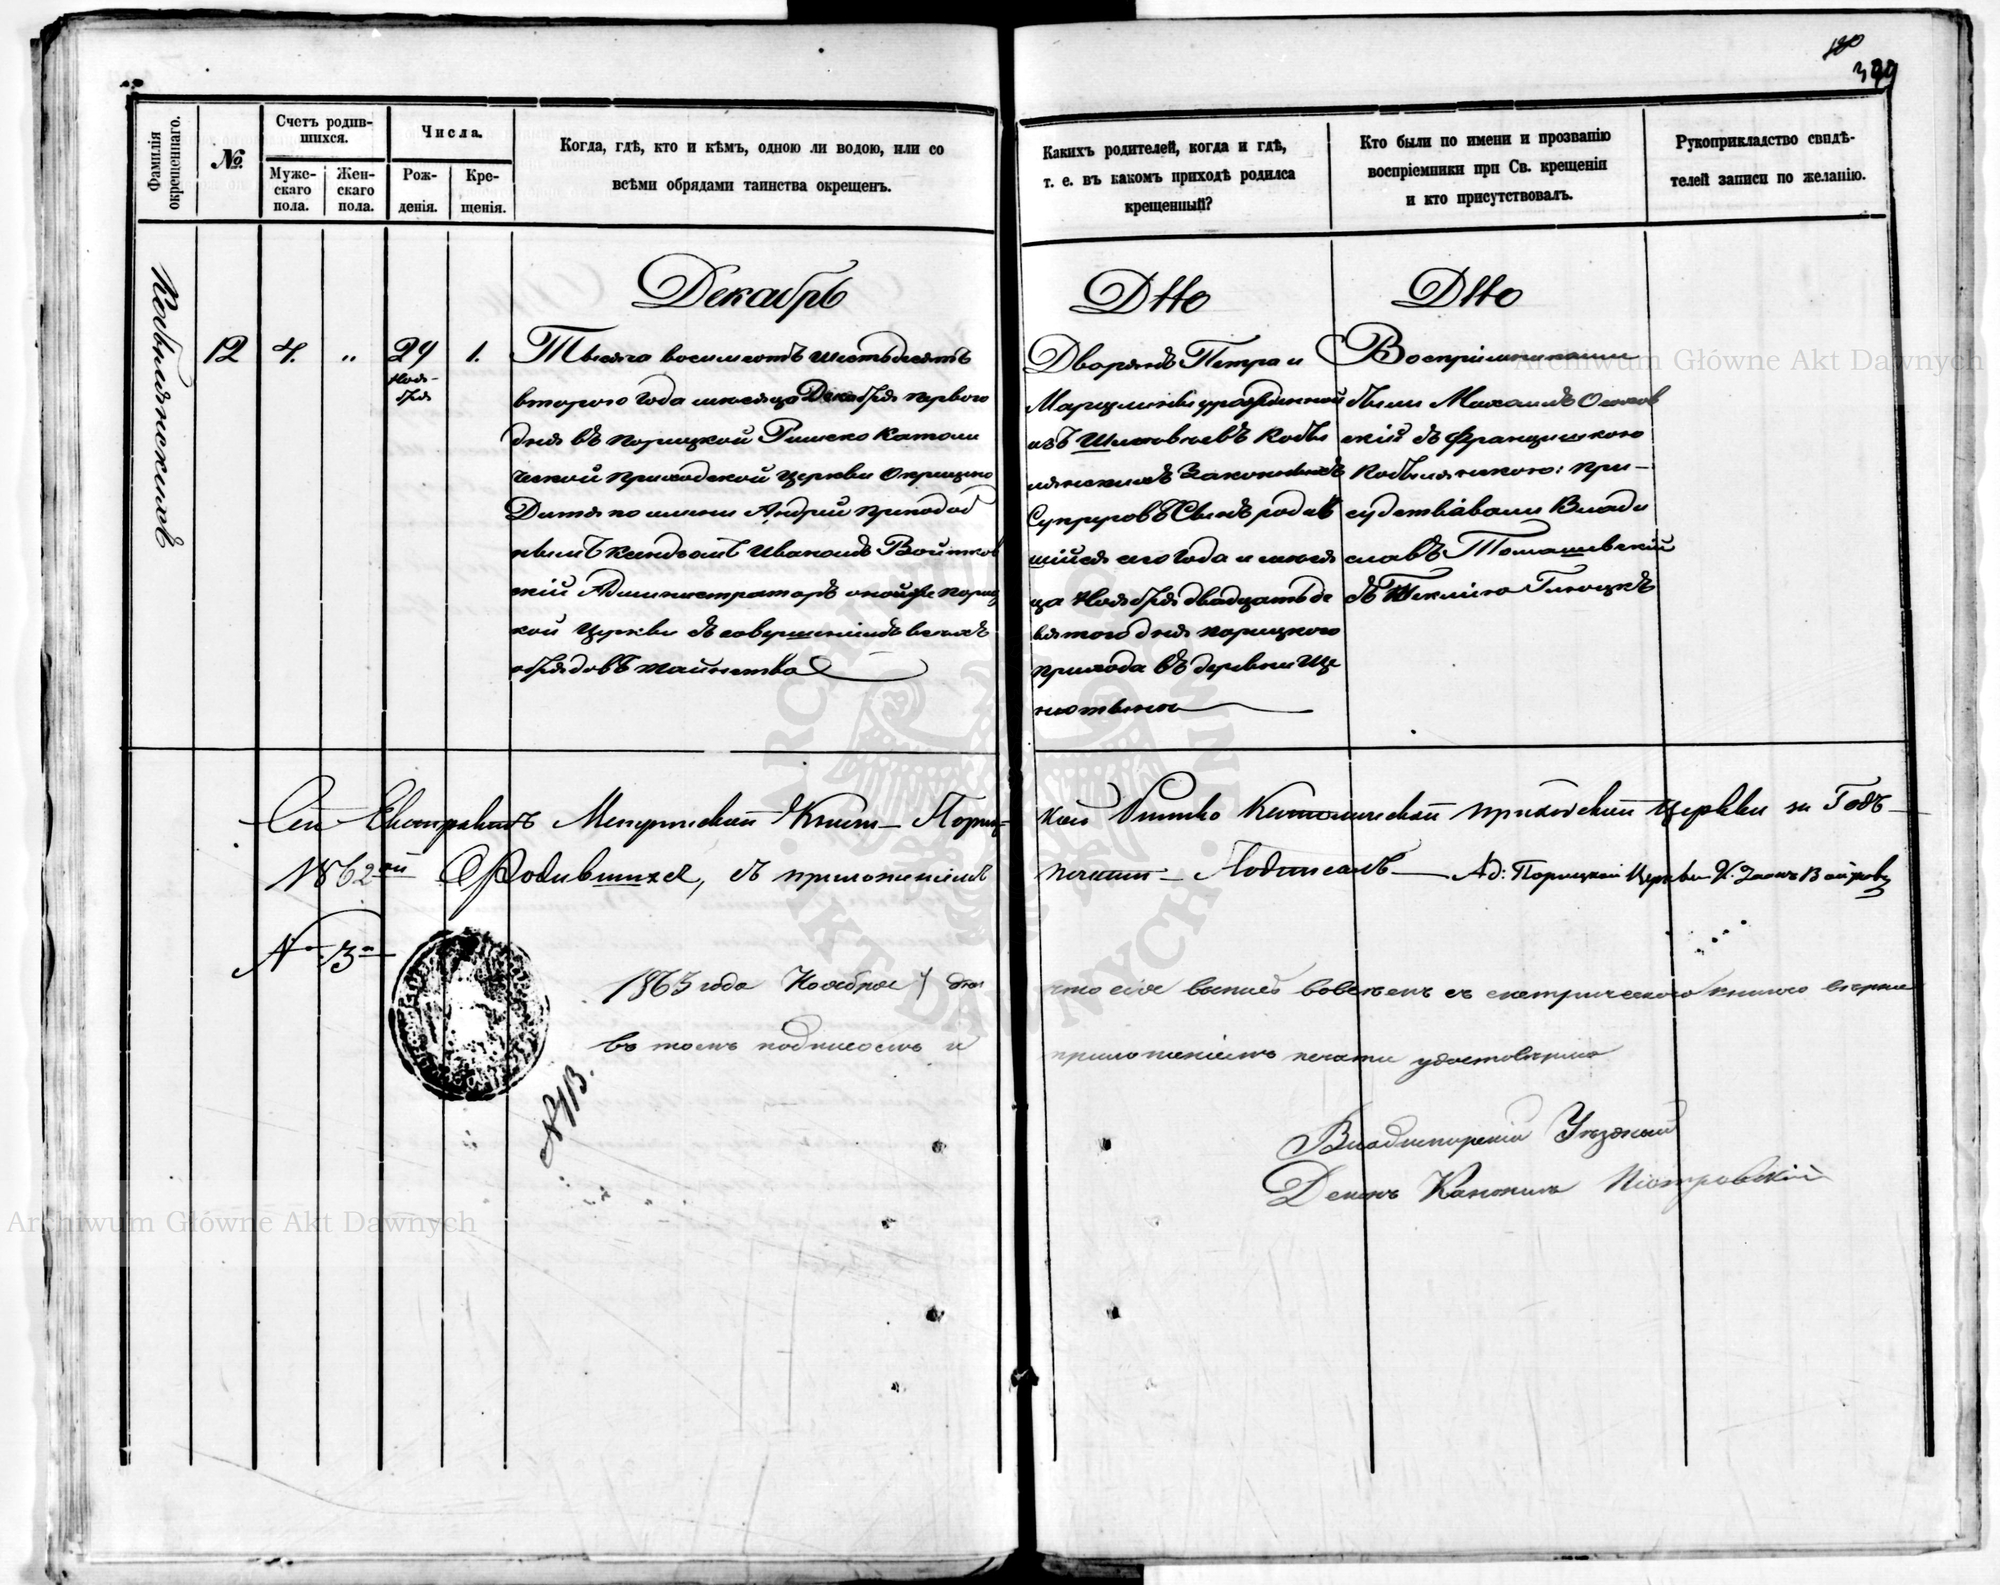 180
399
Фамилія окрещеннаго.
№.
Счетъ родив-
шихся.
Муже-
скаго
пола.
Жен-
скаго
пола.
Числа.
Рож-
денія.
Кре-
щенія.
Когда, гдѣ, кто и кѣмъ, одною ли водою, или со
всѣми обрядами таинства окрещенъ.
Какихъ родителей, когда и гдѣ,
т. е. въ какомъ приходѣ родился
крещенный?
Кто были по имени и прозванію
воспріемники при Св. крещеніи
и кто присутствовалъ.
Рукоприкладство свидѣ-
телей записи по желанію.
Кобылянскихъ
12
4.
"
29
Ноя-
бря
1.
Декабрь
Тысяча восемсотъ шестьдесятъ
втораго года мѣсяца Декабря перваго
дня въ порицкой Римско Католи
ческой приходской церкви Окрещено
Дитя по имени Андрей преподоб
нымъ ксендзомъ Иваномъ Войтков
скій Администраторъ онойже пориц
кой Церкви съ совершеніемъ всехъ
обрядовъ таинства
Dtto
Дворянъ Петра и
Марцелины урожденной
изъ Кобы
лянскихъ Законныхъ
Супруговъ Сынъ родив
шійся сего года и мѣся
ца Ноября двадцать де
вятого дня порицкого
прихода въ деревни Ще
нютыне
Dtto
Воспріемниками
были Михаилъ Осехов
скій съ Францишкою
Кобылянскою: при-
судствавали Влади
славъ Томашевскій
съ Теклію
Сей Екстрактъ Метрической Книги Пориц-
кой Римско Католической приходской Церкви за Годъ
1862ой О Родившихся, съ приложеніемъ
печати Подписалъ Ад: Порицкой Церкви К:
№ 13
1863 года Ноября 7 дня
что сія выпись вовсемъ съ метрическою книгою верна
въ томъ подписомъ и
приложеніемъ печати удостоверяю
№ 713.
Владимирскій Уѣздный
Деканъ Каноникъ Піотровскій
Archiwum Główne Akt Dawnych
Archiwum Główne Akt Dawnych
ARCHIWUM GŁÓWNE AKT DAWNYCH